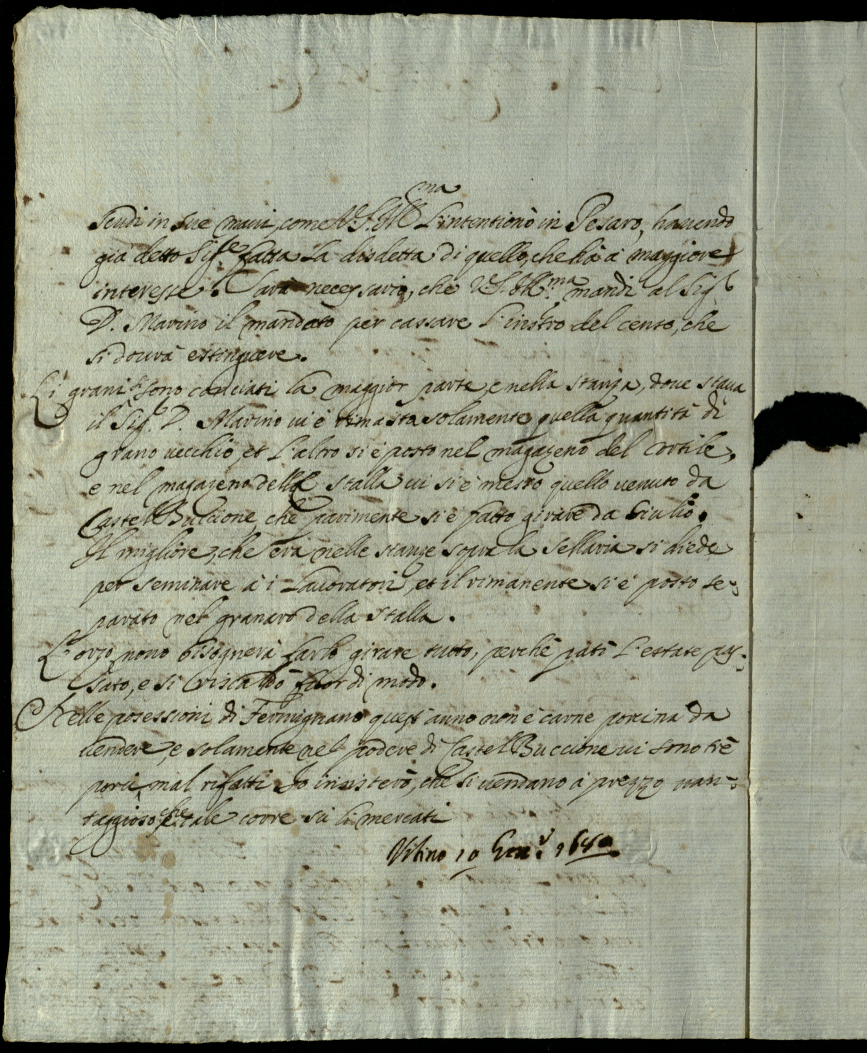 scudi in sue mani, come V. S. Ill.ma l'intentionò in Pesaro, havendo
già detto Sig.re fatta la disdetta di quello, che hà à maggiore
interesse. Sarà necessario, che V. S. Ill.ma mandi al Sig.r
D. Marino il mandato per cassare l'instro del censo, che
si dourà estinguere.
Li grani sono conciati la maggior parte, e nella stanza, doue staua
il Sig.r D. Marino ui è rimasta solamente quella quantità di
grano uecchio et l'altro si è posto nel magazeno del Cortile,
e nel magazeno della stalla ui si è messo quello uenuto da
Castel Buccione, che parimente si è fatto girare da Giulio.
Il migliore, che era nelle stanze sopra la Sellaria si diede
per seminare à i Lauoratori, et il rimanente si è posto se-
parato nel granaro della stalla.
L'orzo nouo bisognerà farlo girare tutto, perche patì l'estate pas-
sato, e si riscaldò fuor di modo.
Nelle posessioni di Fermignano quest'anno non è carne porcina da
uendere, e solamente nel podere di Castel Buccione ui sono trè
porci mal rifatti. Io insisterò, che si uendano à prezzo uan-
taggioso, che tale corre sù li mercati
Urbino 10 Gen.o